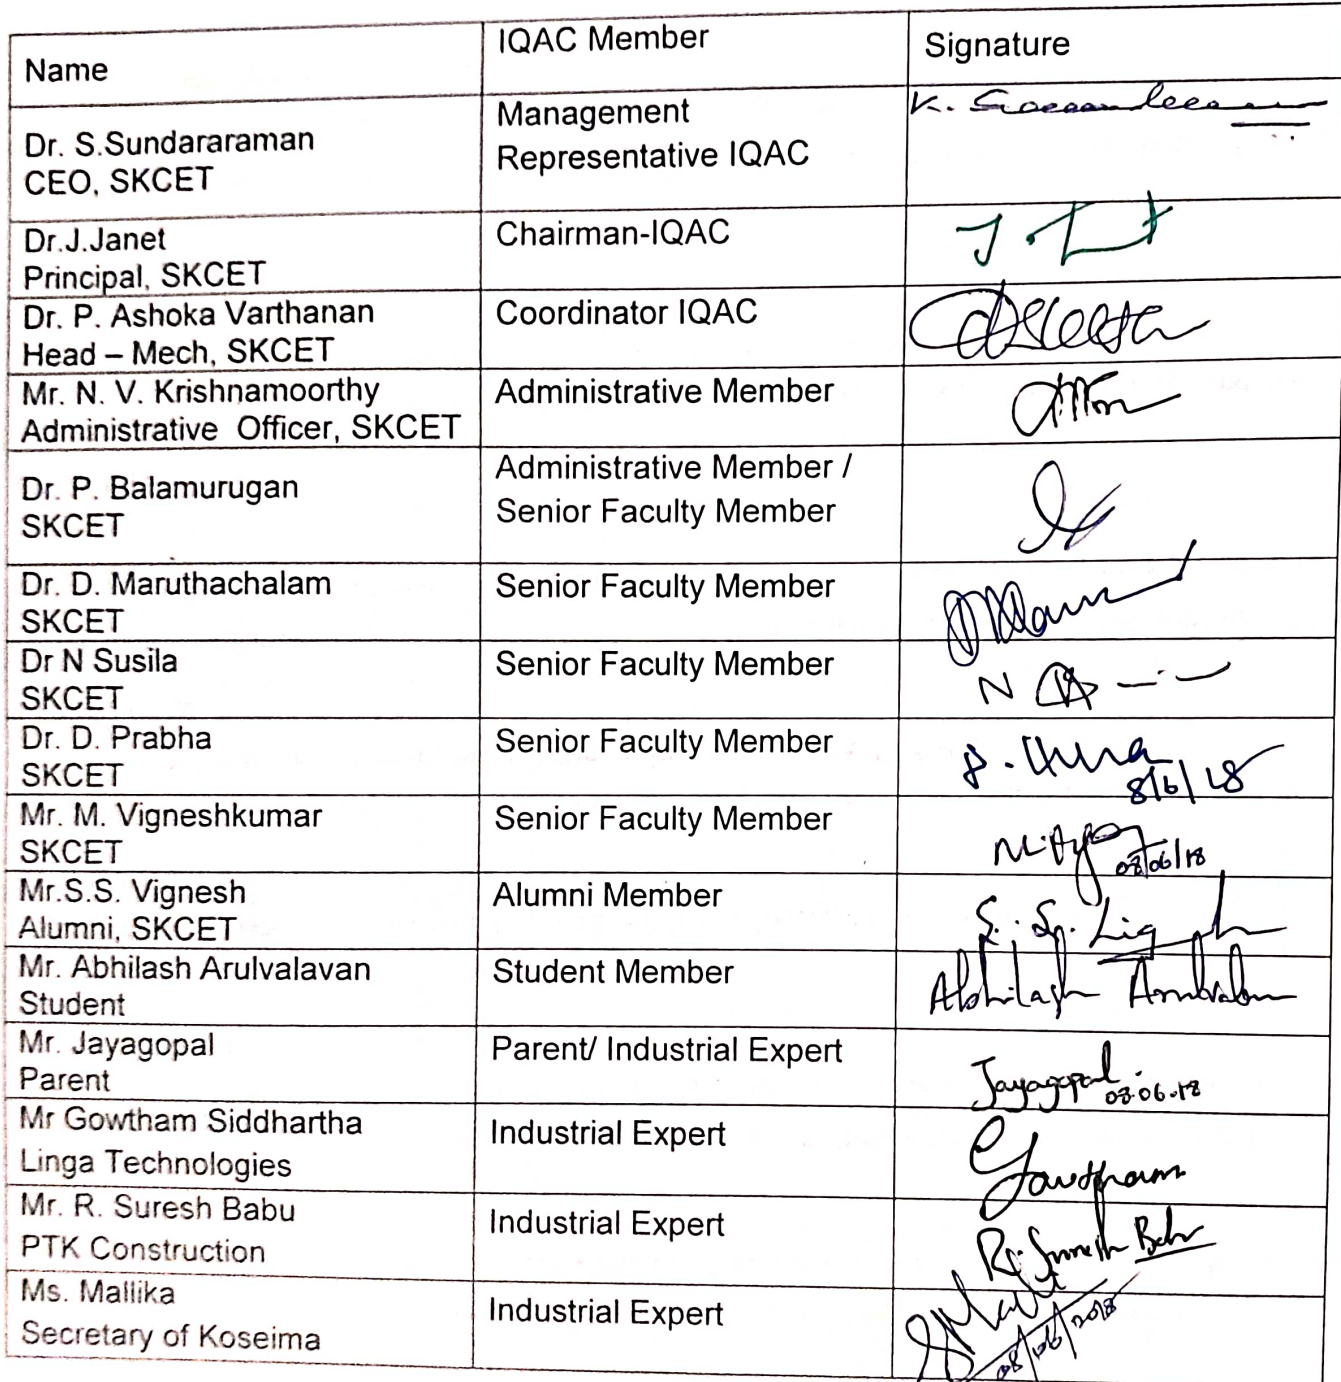 Name
IQAC Member
Signature
Dr. S.Sundararaman
CEO, SKCET
Management
Representative IQAC
K.
Dr.J.Janet
Principal, SKCET
Chairman-IQAC
Dr. P. Ashoka Varthanan
Head – Mech, SKCET
Coordinator IQAC
Mr. N. V. Krishnamoorthy
Administrative Officer, SKCET
Administrative Member
Dr. P. Balamurugan
SKCET
Administrative Member /
Senior Faculty Member
Dr. D. Maruthachalam
SKCET
Senior Faculty Member
Dr N Susila
SKCET
Senior Faculty Member
N
Dr. D. Prabha
SKCET
Senior Faculty Member
8/6/18
Mr. M. Vigneshkumar
SKCET
Senior Faculty Member
08/06/18
Mr.S.S. Vignesh
Alumni, SKCET
Alumni Member
S. S.
Mr. Abhilash Arulvalavan
Student
Student Member
Abhilash Arulvalavan
Mr. Jayagopal
Parent
Parent/ Industrial Expert
Jayagopal
08.06.18
Mr Gowtham Siddhartha
Linga Technologies
Industrial Expert
Gowtham
Mr. R. Suresh Babu
PTK Construction
Industrial Expert
R. Suresh Babu
Ms. Mallika
Secretary of Koseima
Industrial Expert
08/06/2018